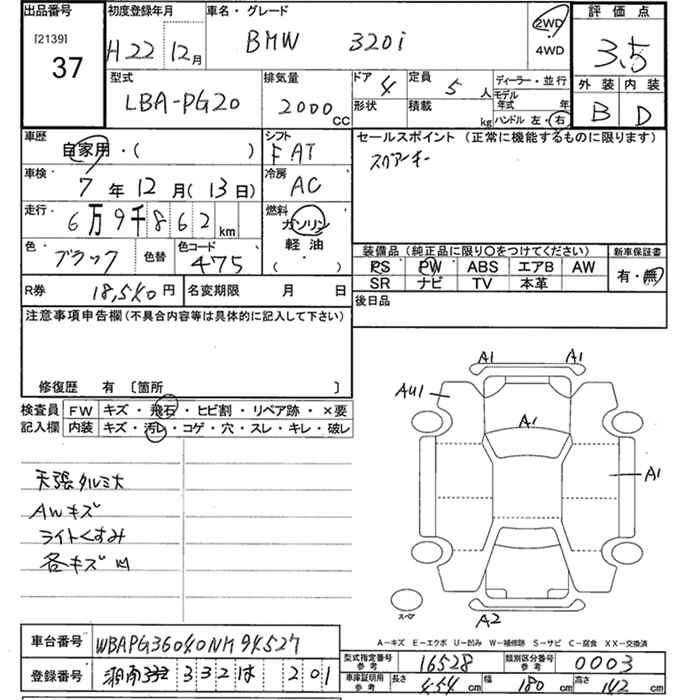 出品番号
[2139]
37
初度登録年月
H22 12月
車名・グレード
BMW 320i
2WD
・
4WD
評価点
3.5
外装 内装
B D
型式
LBA-PG20
排気量
2000 CC
ドア 4
形状
定員 5 人
積載 kg
ディーラー・並行
モデル
年式 年
ハンドル 左・右
車歴
自家用・( )
シフト
F AT
セールスポイント (正常に機能するものに限ります)
スペアーキー
車検
7年12月(13日)
冷房
AC
走行
6万9千862km
燃料
ガソリン
軽油
( )
色
ブラック
色替
色コード
475
装備品(純正品に限り○をつけてください)
新車保証書
PS PW ABS エアB AW
SR ナビ TV 本革
有・無
R券 18,540円
名変期限 月 日
後日品
注意事項申告欄(不具合内容等は具体的に記入して下さい)
修復歴 有 〔箇所 〕
検査員
記入欄
FW キズ・飛石・ヒビ割・リペア跡・×要
内装 キズ・汚レ・コゲ・穴・スレ・キレ・破レ
天張タルミ大
AWキズ
ライトくすみ
各キズ凹
A1 A1
AU1
A1
A1
スペア
A2
A－キズ E－エクボ U－凹み W－補修跡 S－サビ C－腐食 XX－交換済
車台番号 WBAPG36040NM94527
登録番号 湘南332 332は 201
型式指定番号
参考
16528
類別区分番号
参考
0003
車庫証明用
参考
長さ 454 cm 幅 180 cm 高さ 142 cm